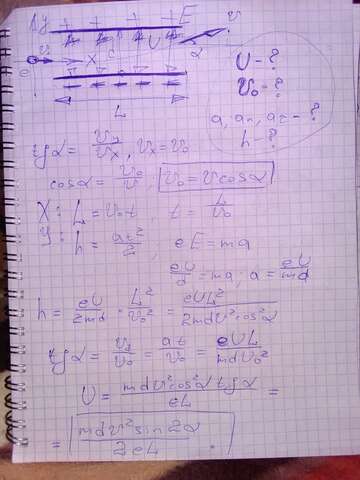 y + + + + E v
v X d U α
e
- - - - -
L
U - ?
v₀ - ?
a, aₙ, aτ - ?
h - ?
tgα = v_y/v_x, v_x = v₀
cosα = v₀/v, v₀ = v cosα
X: L = v₀t, t = L/v₀
Y: h = at²/2, eE = ma
eU/d = ma; a = eU/md
h = eU/2md · L²/v₀² = eUL²/2mdv²cos²α
tgα = v_y/v₀ = at/v₀ = eUL/mdv₀²
U = mdv²cos²α tgα/eL =
= mdv²sin2α/2eL.